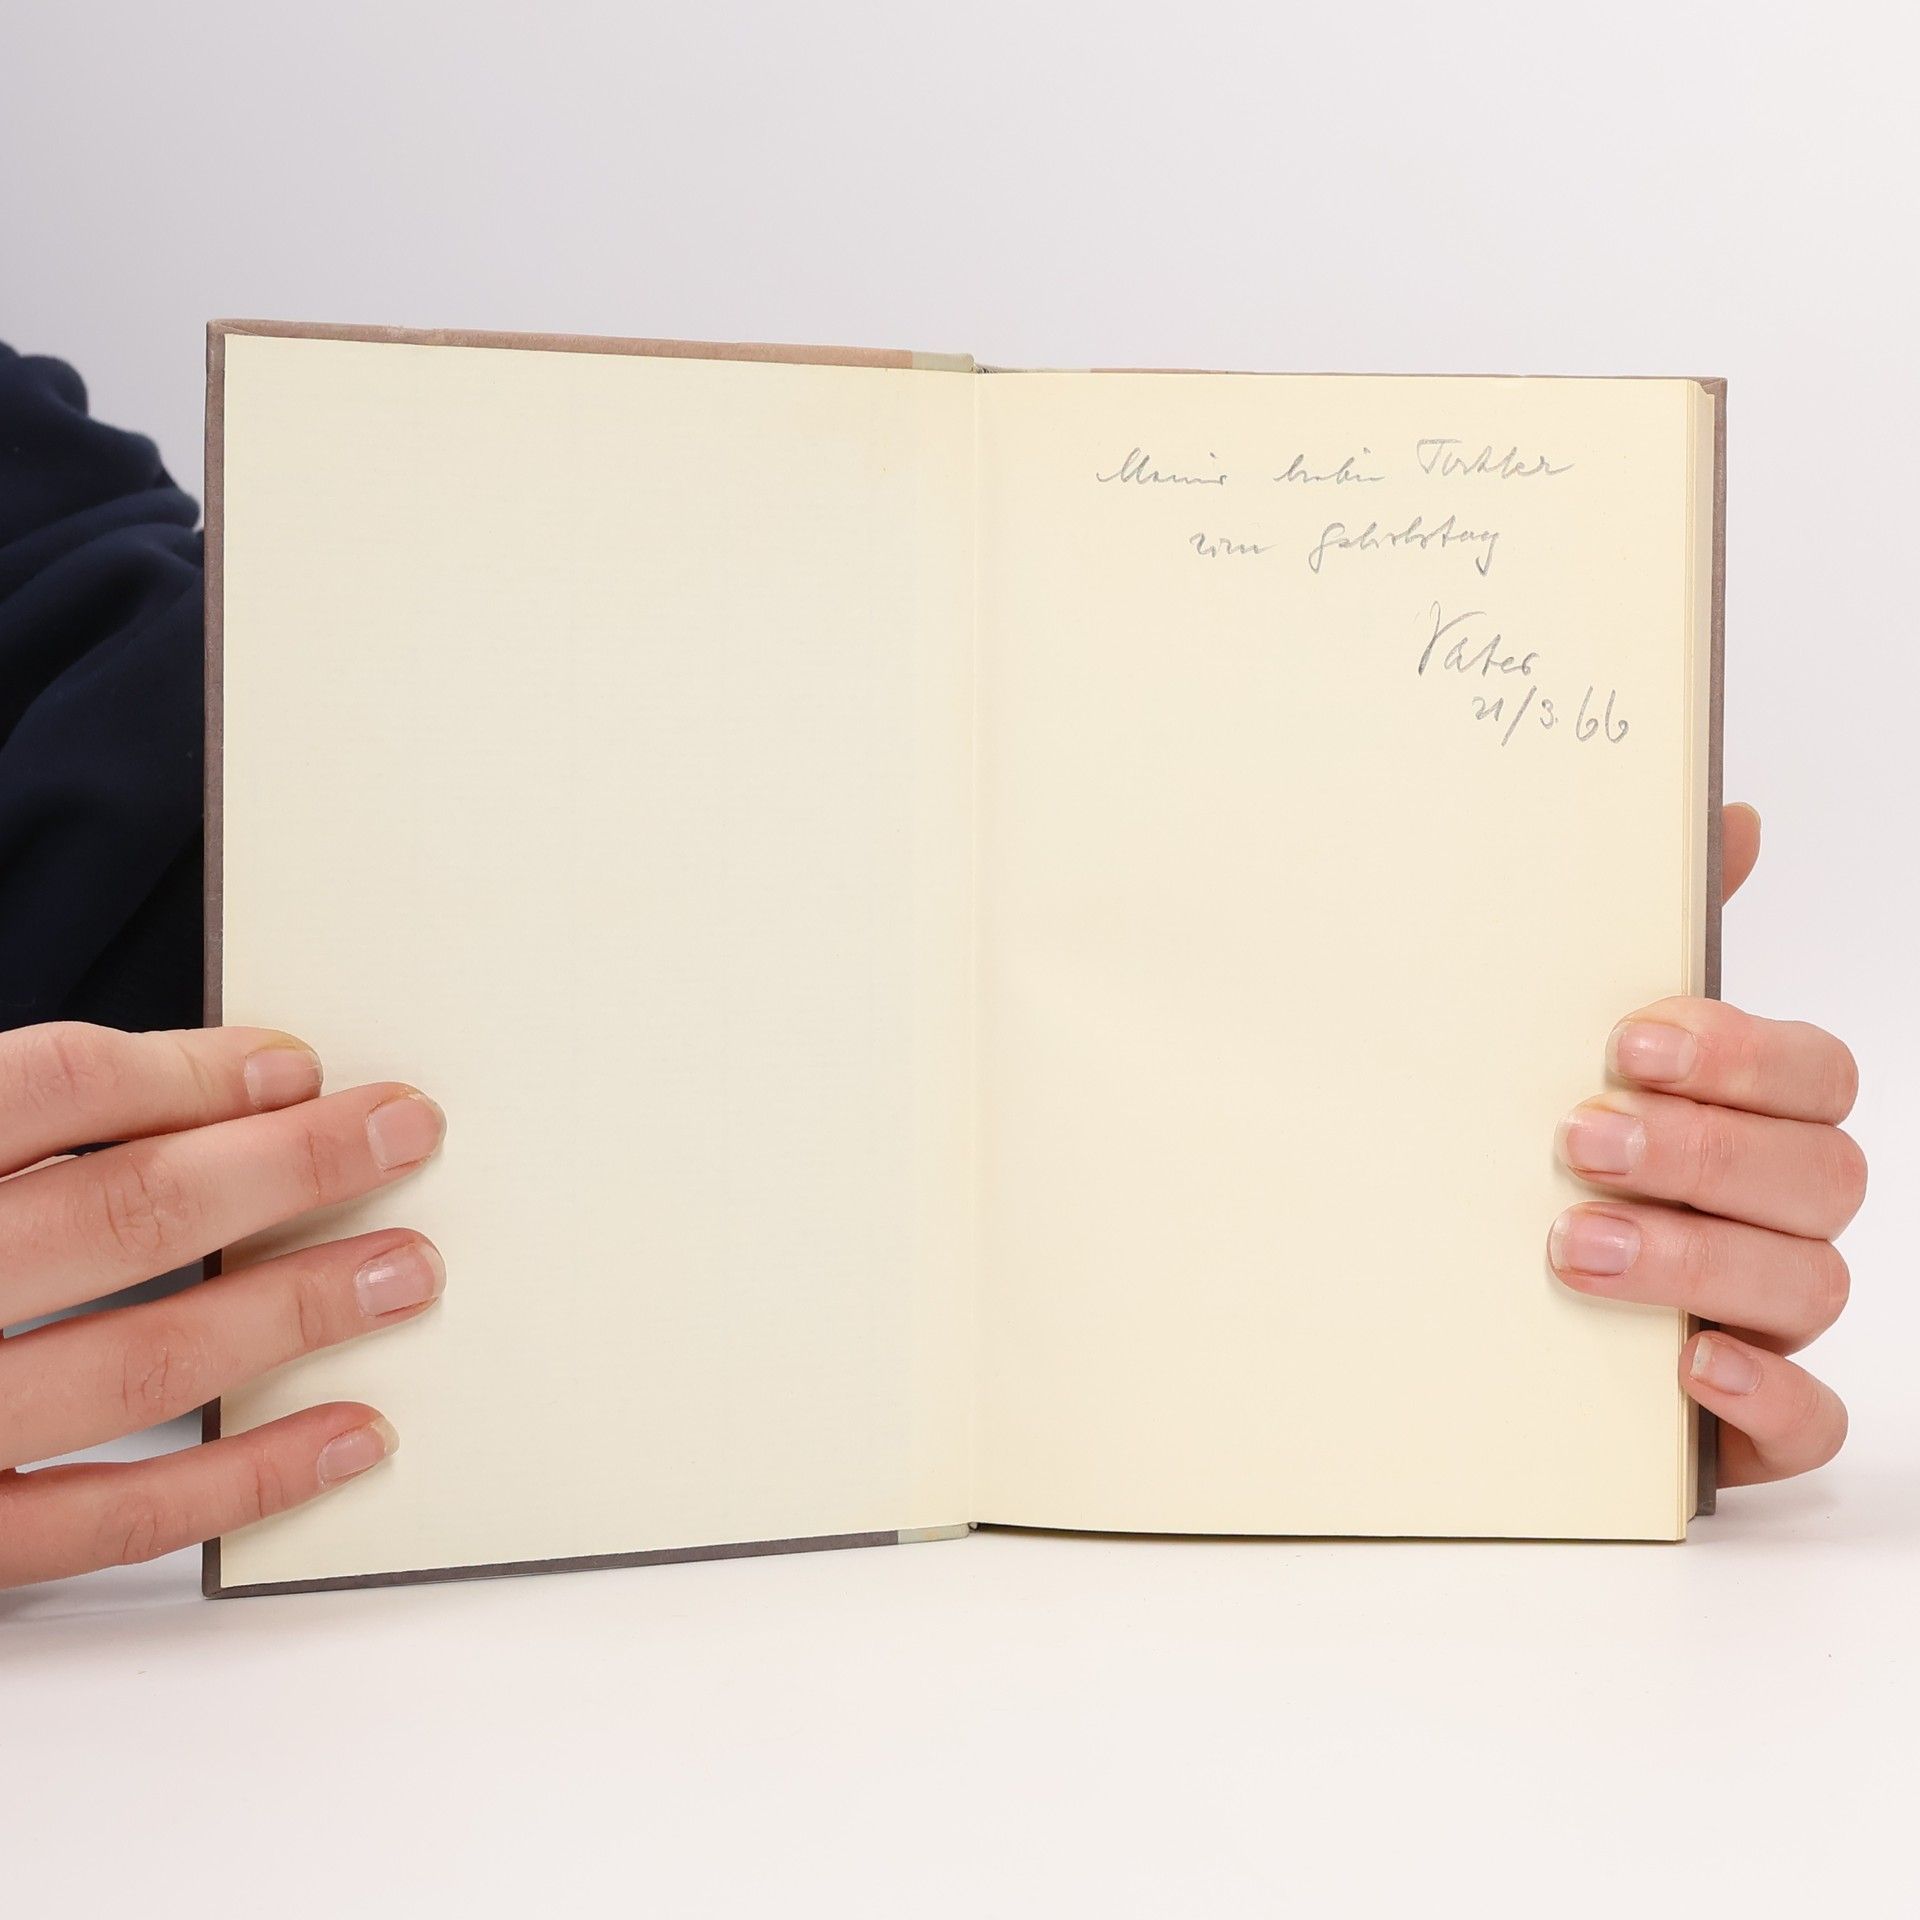 Meiner lieben Tochter
zum Geburtstag
Vater
21/3.66